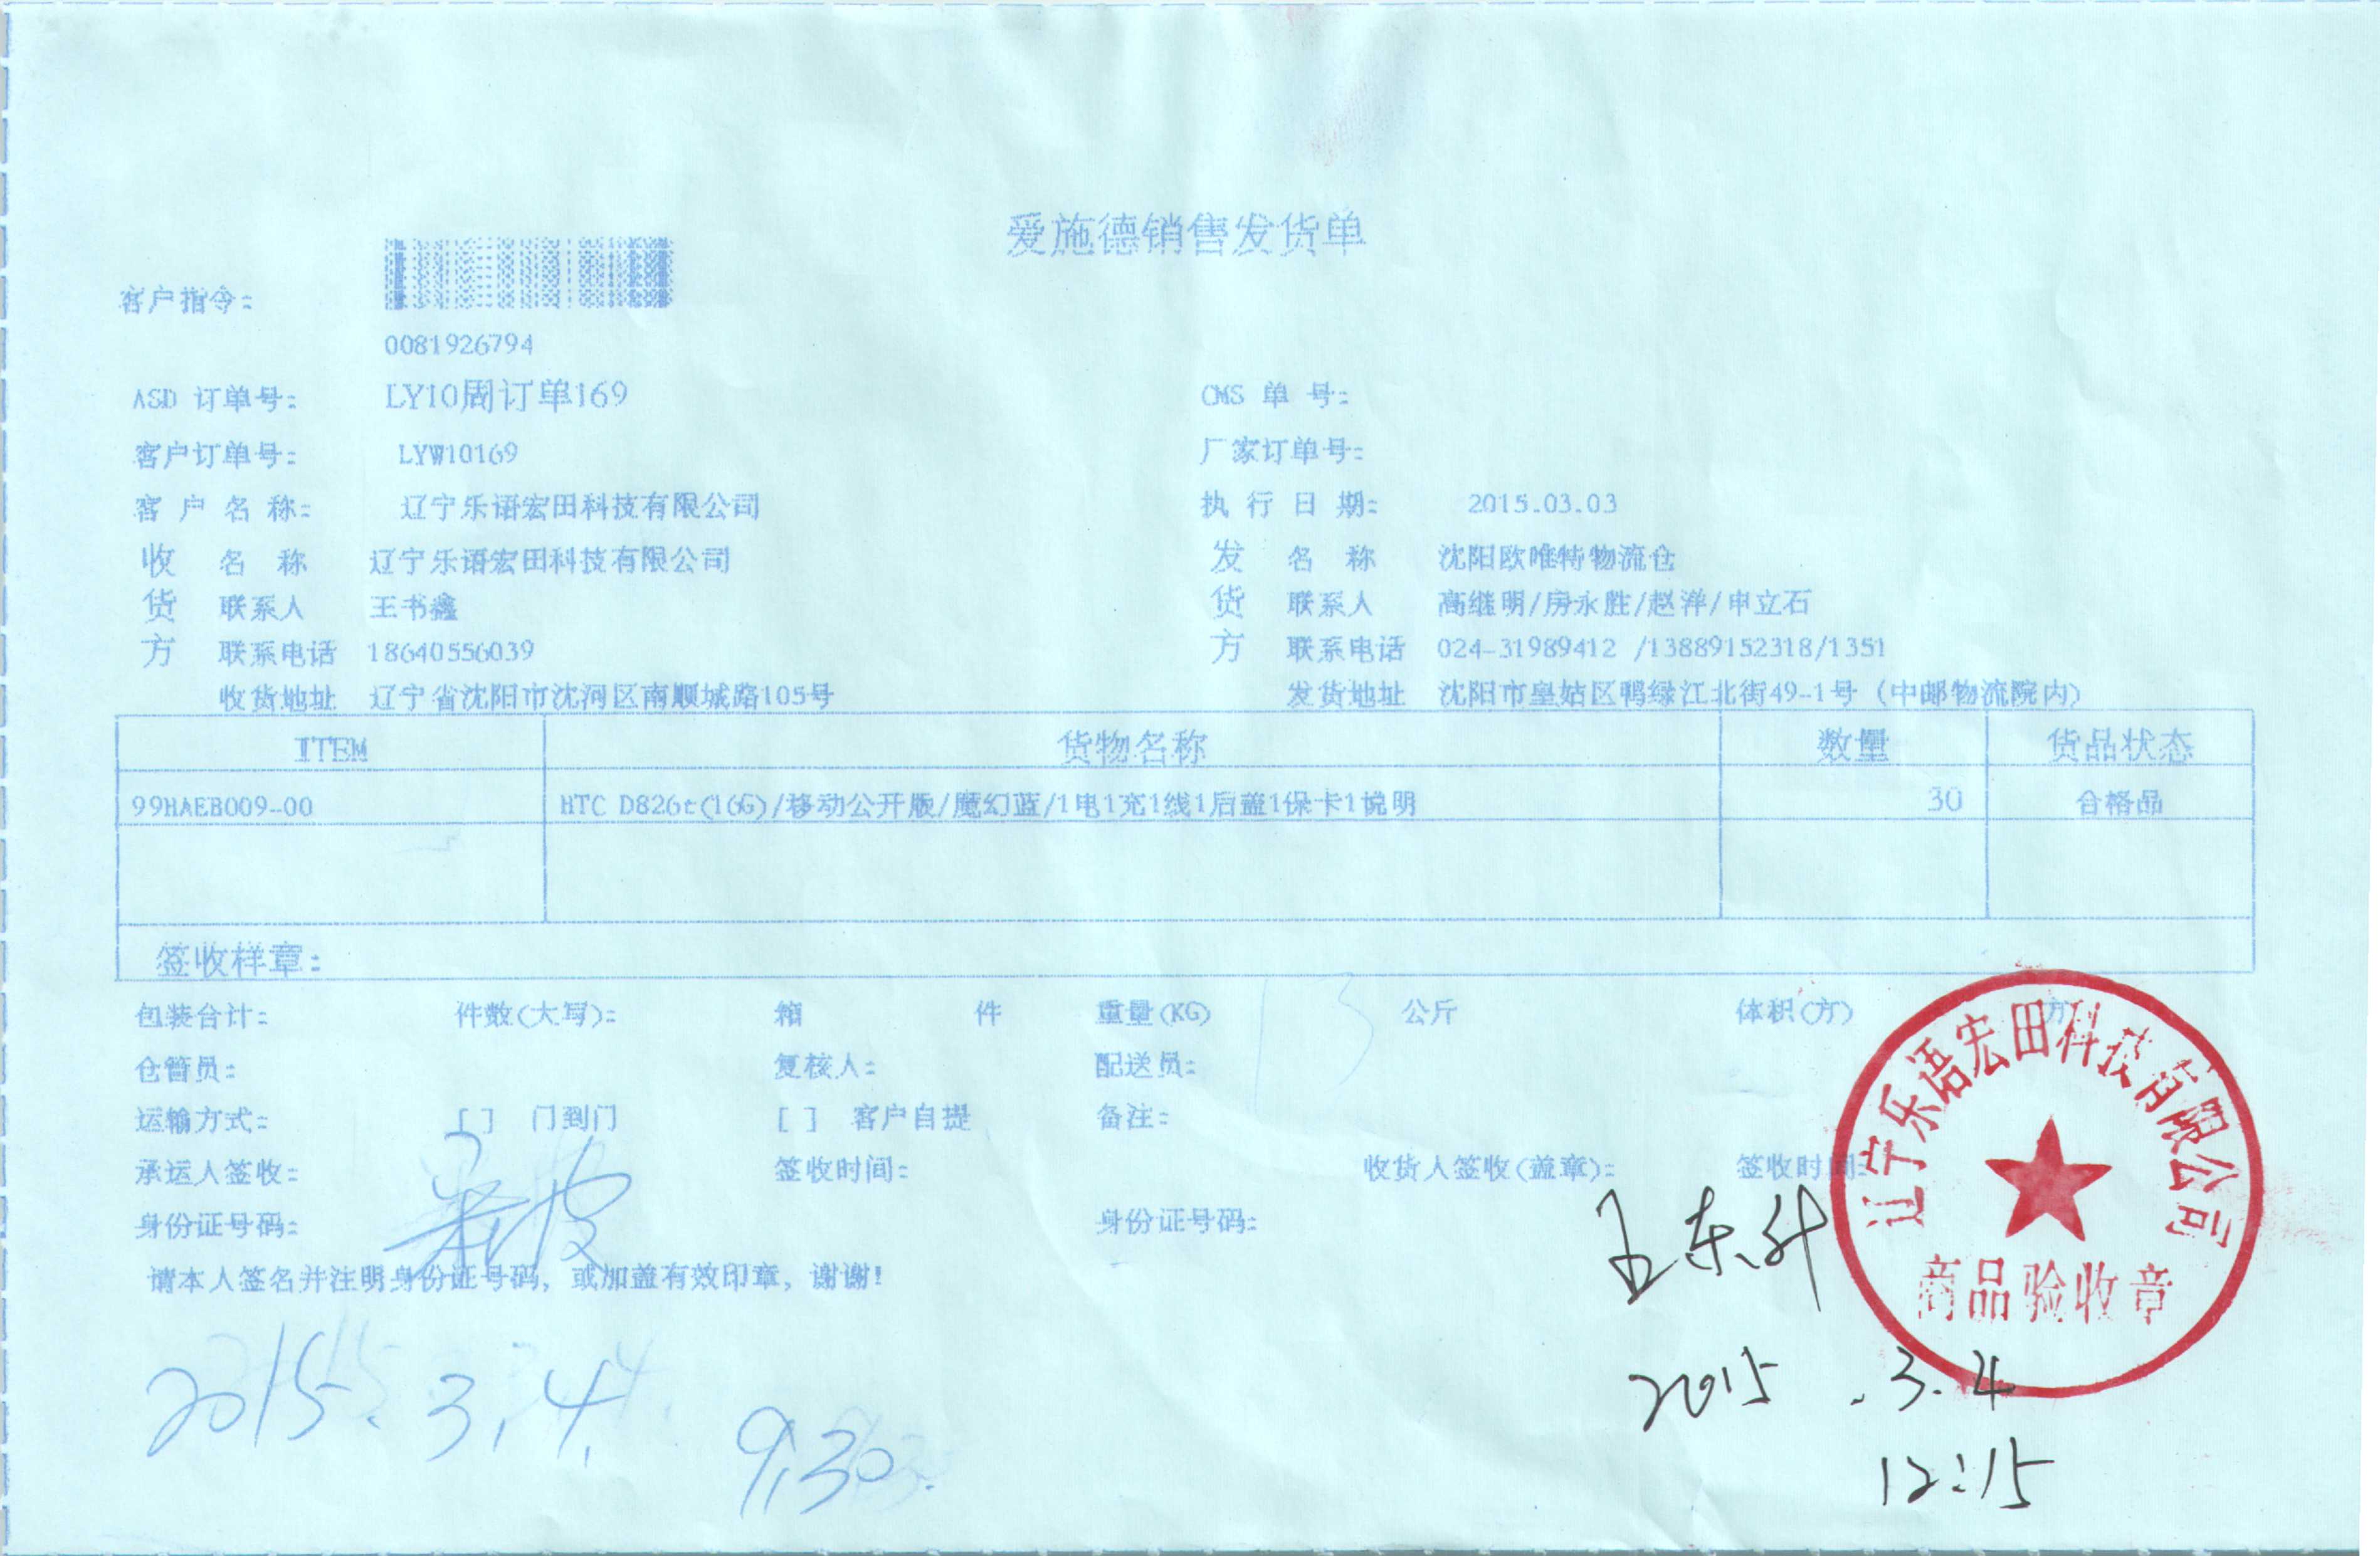 爱施德销售发货单
客户指令:
0081926794
ASD 订单号: LY10周订单169 CMS 单 号:
客户订单号: LYW10169 厂家订单号:
客 户 名 称: 辽宁乐语宏田科技有限公司 执 行 日 期: 2015.03.03
收 名 称 辽宁乐语宏田科技有限公司 发 名 称 沈阳欧唯特物流仓
货 联系人 王书鑫 货 联系人 高继明/房永胜/赵洋/申立石
方 联系电话 18640556039 方 联系电话 024-31989412 /13889152318/1351
收货地址 辽宁省沈阳市沈河区南顺城路105号 发货地址 沈阳市皇姑区鸭绿江北街49-1号 (中邮物流院内)
ITEM 货物名称 数量 货品状态
99HAEB009-00 HTC D826t(16G)/移动公开版/魔幻蓝/1电1充1线1后盖1保卡1说明 30 合格品
签收样章:
包装合计: 件数(大写): 箱 件 重量(KG) 13 公斤 体积(方) 方
仓管员: 复核人: 配送员:
运输方式: [ ] 门到门 [ ] 客户自提 备注:
承运人签收: 签收时间: 收货人签收(盖章): 签收时间:
身份证号码: 身份证号码:
请本人签名并注明身份证号码, 或加盖有效印章, 谢谢!
辽宁乐语宏田科技有限公司
商品验收章
王东升
2015.3.4. 2015.3.4
9:30. 12:15